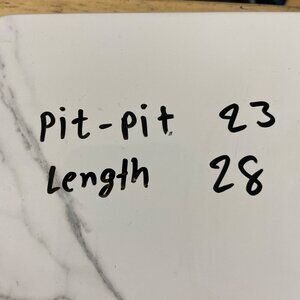 Pit-Pit 23
Length 28